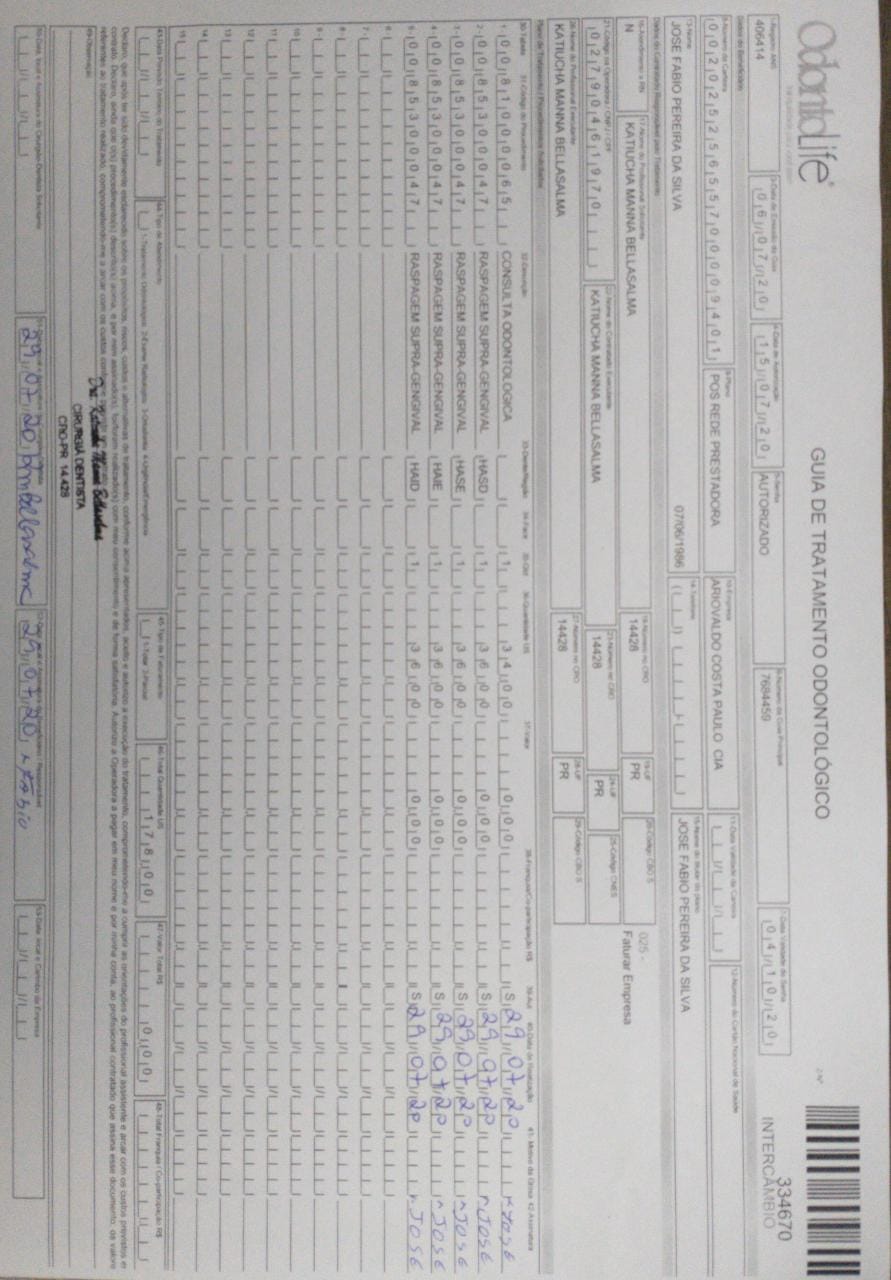 OdontoLife®
GUIA DE TRATAMENTO ODONTOLÓGICO
2-Nº
334670
INTERCÂMBIO
1-Registro ANS
406414
3-Data de Emissão da Guia
06/07/20
4-Data de Autorização
15/07/20
5-Senha
AUTORIZADO
6-Número da Guia Principal
7684459
7-Data Validade da Senha
04/10/20
Dados do Beneficiário
8-Número da Carteira
00202525655700009401
9-Plano
POS REDE PRESTADORA
10-Empresa
ARIOVALDO COSTA PAULO CIA
11-Data Validade da Carteira
12-Número do Cartão Nacional de Saúde
13-Nome
JOSE FABIO PEREIRA DA SILVA
07/06/1986
14-Telefone
15-Nome do titular do plano
JOSE FABIO PEREIRA DA SILVA
Dados do Contratado Responsável pelo Tratamento
16-Atendimento a RN
N
17-Nome do Profissional Solicitante
KATIUCHA MANNA BELLASALMA
18-Número no CRO
14428
19-UF
PR
20-Código CBO S
025 -
Faturar Empresa
21-Código na Operadora / CNPJ / CPF
02790461970
22-Nome do Contratado Executante
KATIUCHA MANNA BELLASALMA
23-Número no CRO
14428
24-UF
PR
25-Código CNES
26-Nome do Profissional Executante
KATIUCHA MANNA BELLASALMA
27-Número no CRO
14428
28-UF
PR
29-Código CBO S
Plano de Tratamento / Procedimentos Solicitados
30-Tabela 31-Código do Procedimento 32-Descrição 33-Dente/Região 34-Face 35-Qtd 36-Quantidade US 37-Valor 38-Franquia/Co-participação R$ 39-Aut 40-Data de Realização 41-Motivo da Glosa 42-Assinatura
1- 00 81000065 CONSULTA ODONTOLOGICA 1 34,00 0,00 S 29/07/20 x José
2- 00 85300047 RASPAGEM SUPRA-GENGIVAL HASD 1 36,00 0,00 S 29/07/20 x JOSÉ
3- 00 85300047 RASPAGEM SUPRA-GENGIVAL HASE 1 36,00 0,00 S 29/07/20 x JOSÉ
4- 00 85300047 RASPAGEM SUPRA-GENGIVAL HAIE 1 36,00 0,00 S 29/07/20 x JOSÉ
5- 00 85300047 RASPAGEM SUPRA-GENGIVAL HAID 1 36,00 0,00 S 29/07/20 x JOSÉ
6-
7-
8-
9-
10-
11-
12-
13-
14-
15-
43-Data Prevista Término do Tratamento
44-Tipo de Atendimento
1-Tratamento Odontológico 2-Exame Radiológico 3-Ortodontia 4-Urgência/Emergência
45-Tipo de Faturamento
1-Total 2-Parcial
46-Total Quantidade US
178,00
47-Valor Total R$
0,00
48-Total Franquia / Co-participação R$
Declaro, que após ter sido devidamente esclarecido sobre os propósitos, riscos, custos e alternativas de tratamento, conforme acima apresentados, aceito e autorizo a execução do tratamento, comprometendo-me a cumprir as orientações do profissional assistente e arcar com os custos previstos em
contrato. Declaro, ainda que o(s) procedimento(s) descrito(s) acima, e por mim assinado(s), foi/foram realizado(s) com meu consentimento e de forma satisfatória. Autorizo a Operadora a pagar em meu nome e por minha conta, ao profissional contratado que assina esse documento, os valores
referentes ao tratamento realizado, comprometendo-me a arcar com os custos
49-Observação
Dra. Katiucha Manna Bellasalma
CIRURGIÃ DENTISTA
CRO-PR 14.428
50-Data, local e Assinatura do Cirurgião-Dentista Solicitante
29/07/20
29/07/20 x Fabio
53-Data, local e Carimbo da Empresa